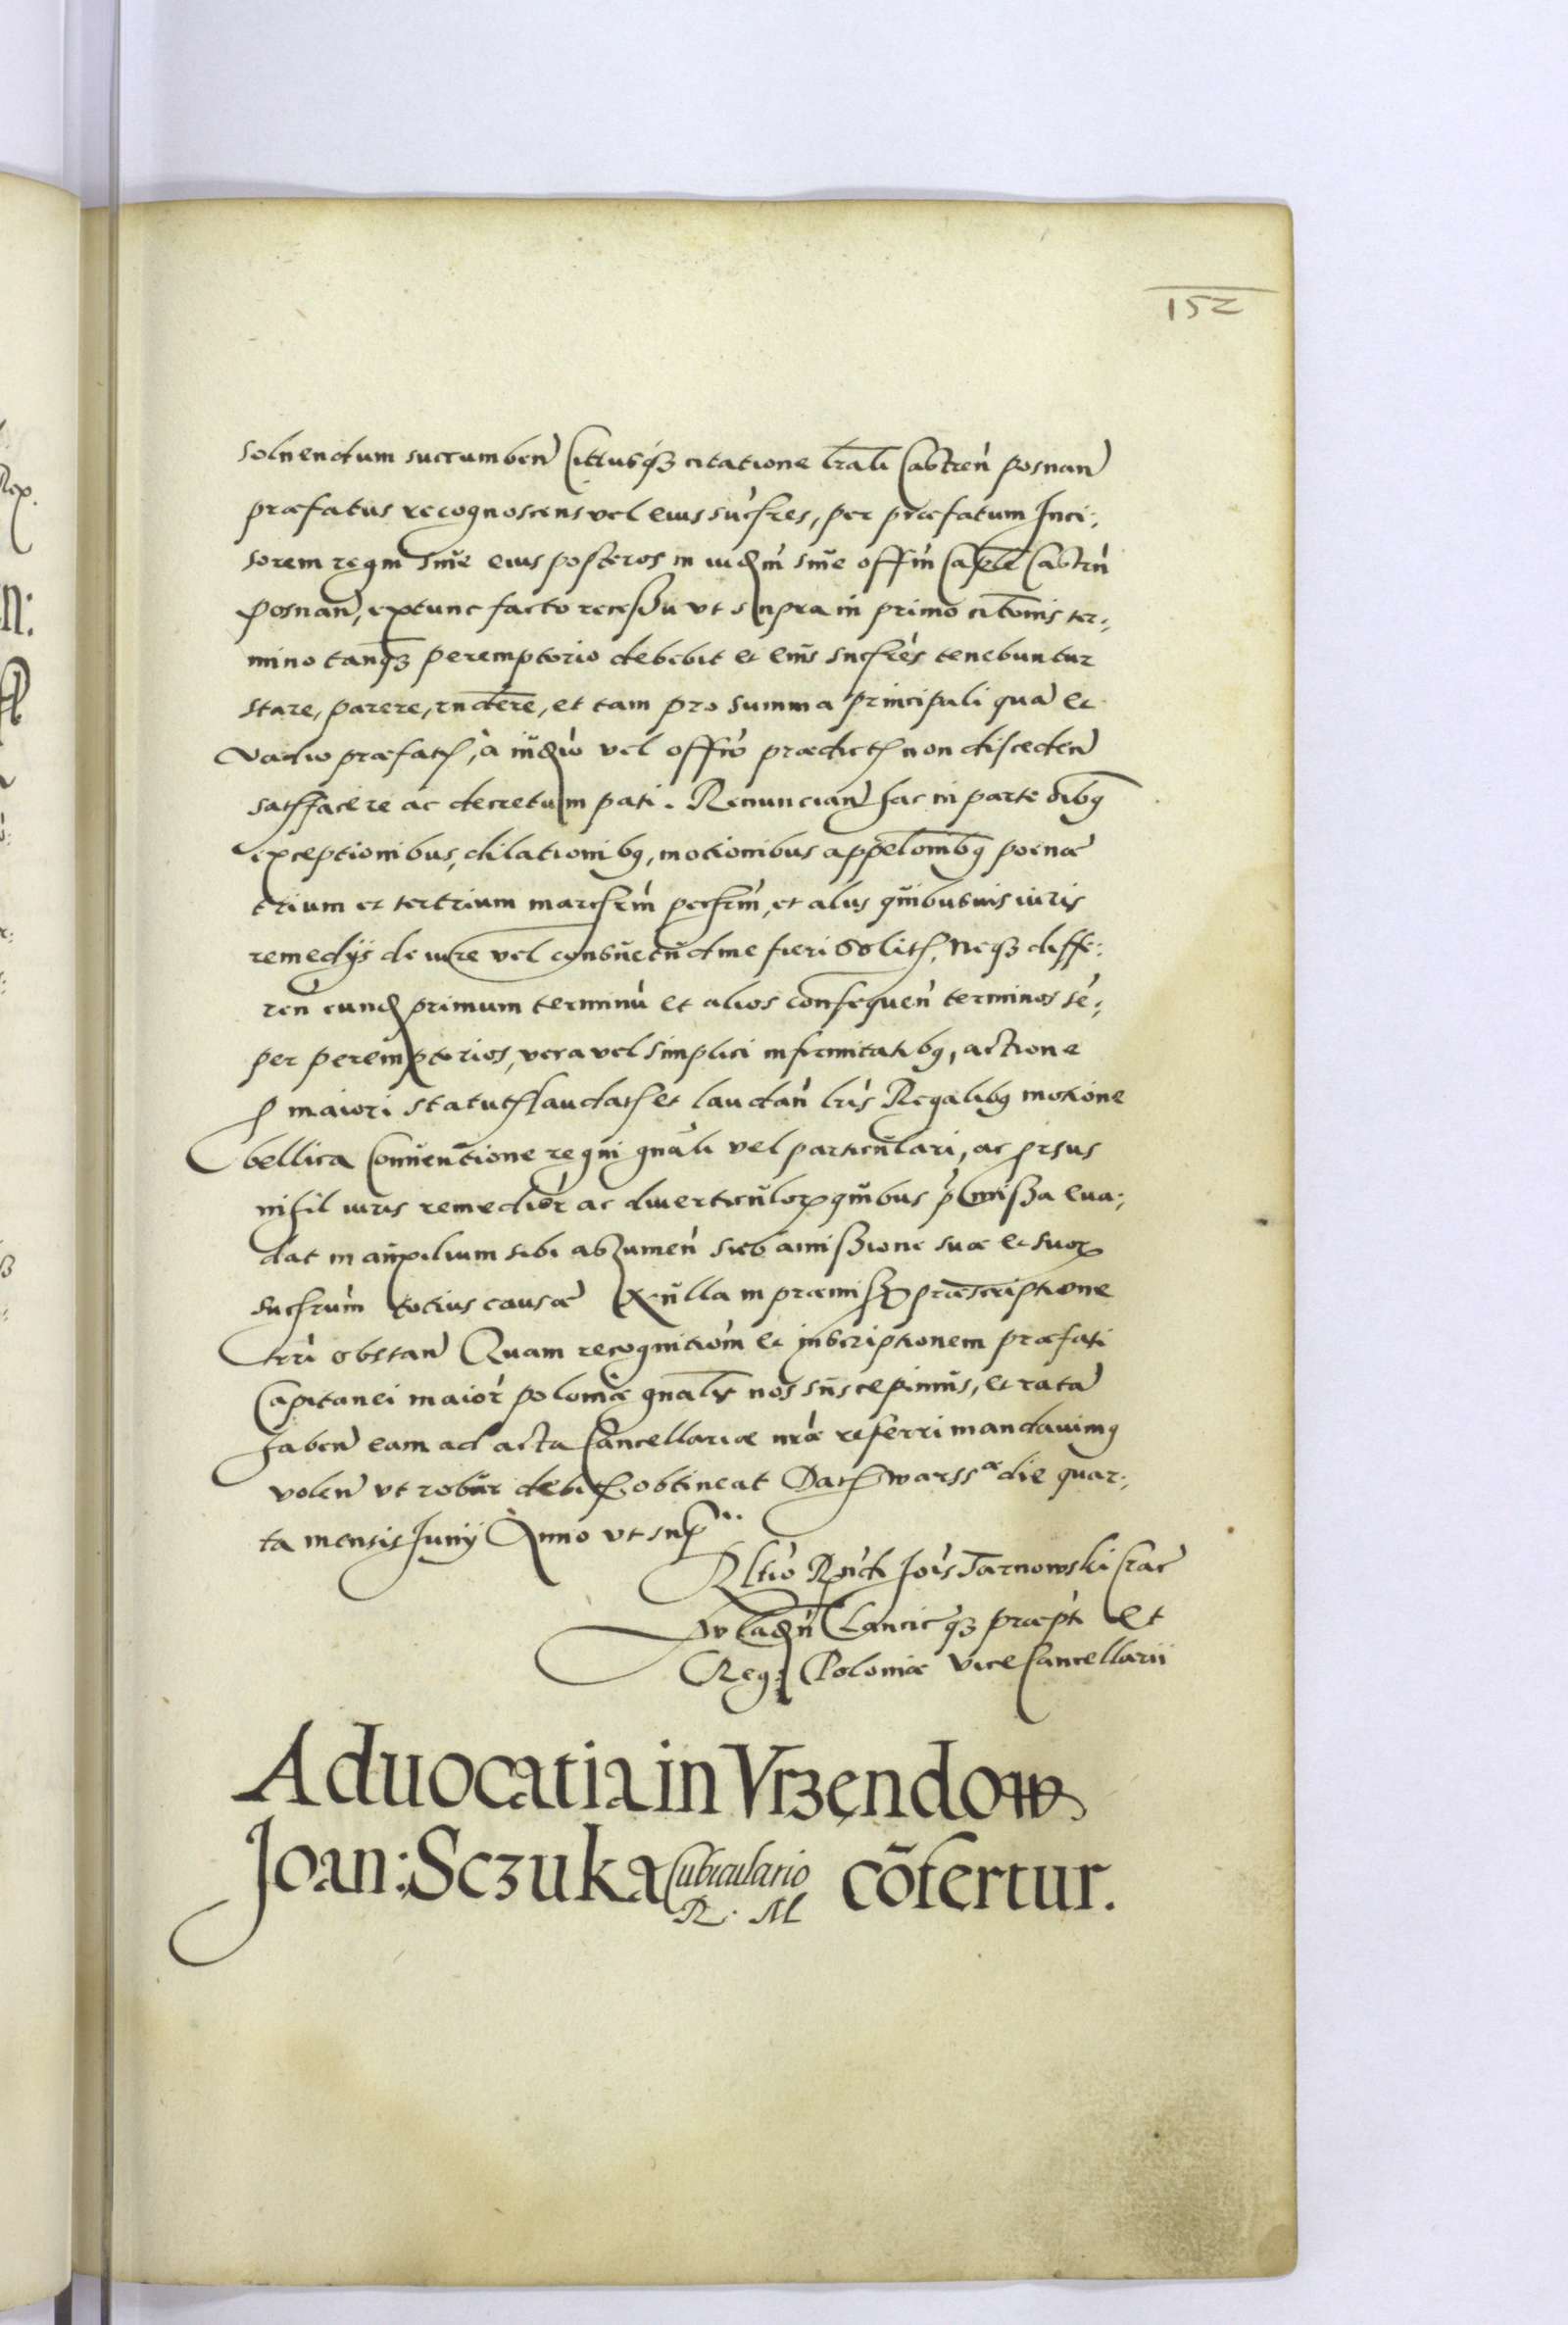 152
solvendum succumben Cittusqȝ citatione lrali Castren posnan
præfatus recognoscens vel eius sucsres, per præfatum Inci:
sorem regni siue eius posteros in iudm siue offm Caple Castrn
Posnan, extunc facto recessu vt supra in primo citonis ter:
mino tanqȝ peremptorio debebit et eius sucsres tenebuntur
stare, parere, rndere, et tam pro summa principali qua et
vadio præfat, à iudio vel offio prædict non disceden
satsfacere ac decretum pati. Renuncian hac in parte oibȝ
exceptionibus, dilationibȝ, motionibus appellombȝ poenæ
trium et tertrium marcharm pecharm, et aliis quibusuis iuris
remedijs de iure vel consuetudine fieri solit, Neqȝ diffe:
ren eund primum terminu et alios consequen terminos sè:
per peremptorios, vera vel simplici infirmitatibȝ, actione
p maiori statut laudat et laudan lris Regalibȝ motione
bellica Conuentione regni gnali vel particulari, ac prsus
nihil iuris remedior ac diuerticulor quibus pmissa eua:
dat in auxilium sibi assumen sub amissione suæ et suor
sucsrum totius causæ Nulla in præmiss præscriptione
trri obstan Quam recognitiom et inscriptionem præfati
Capitanei maior poloniæ gnalis nos suscepimus, et rata
haben eam ad acta Cancellariæ nræ referri mandauimȝ
volen vt robur debit obtineat Dat warssæ die quar:
ta mensis Junij Anno vt sup
Rltio Rndi Jois Tarnowski Crac
wladn Lancicqȝ præpti et
Reg: Poloniæ ViceCancellarii
Aduocatia in Vrzendow
Joan: Sczuka Cubiculario
R. M cõfertur.